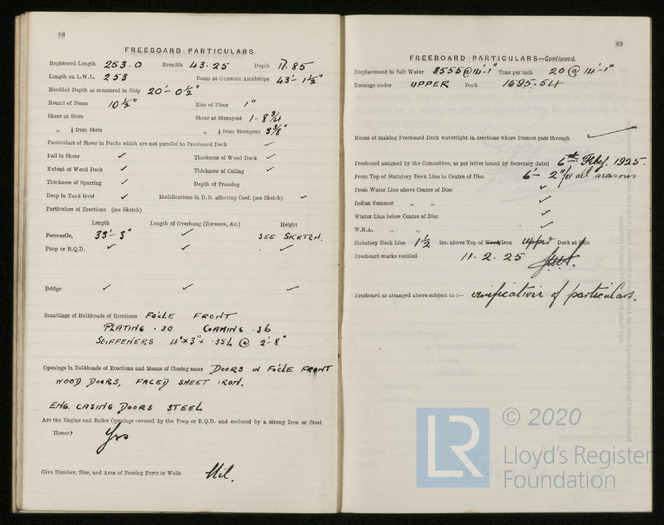 88
FREEBOARD PARTICULARS.
Registered Length 253.0 Breadth 43.25 Depth 17.85
Length on L.W.L. 253 Beam at Gunwale Amidships 43'- 1½"
Moulded Depth as measured in Ship 20'- 0½"
Round of Beam 10½" Rise of Floor 1"
Sheer at Stem Sheer at Sternpost 1-8¾
" ¼ from Stem " ¼ from Sternpost
Particulars of Sheer in Decks which are not parallel to Freeboard Deck ✓
Fall in Sheer ✓ Thickness of Wood Deck ✓
Extent of Wood Deck ✓ Thickness of Ceiling ✓
Thickness of Sparring ✓ Depth of Framing
Drop in Tank level ✓ Modifications in D.B. affecting Coef. (see Sketch) ✓
Particulars of Erections (see Sketch)
Length Length of Overhang (Recesses, &c.) Height
Forecastle, 33'- 3" ✓ SEE SKETCH.
Poop or R.Q.D. ✓ ✓ ✓
Bridge ✓ ✓ ✓
Scantlings of Bulkheads of Erections FOCLE FRONT
PLATING .30 COAMING .36
STIFFENERS 4"x3"x .354 @ 2'-8"
Openings in Bulkheads of Erections and Means of Closing same DOORS IN FOCLE FRONT
WOOD DOORS, FACED SHEET IRON.
ENG. CASING DOORS STEEL
Are the Engine and Boiler Openings covered by the Poop or R.Q.D. and enclosed by a strong Iron or Steel
House? Yes
Give Number, Size, and Area of Freeing Ports in Wells Nil.
89
FREEBOARD PARTICULARS—Continued.
Displacement in Salt Water 3555@14'-1" Tons per inch 20 @ 14'-1"
Tonnage under UPPER Deck 1595.54
Means of making Freeboard Deck watertight in erections where Frames pass through ✓
Freeboard assigned by the Committee, as per letter issued by Secretary dated 6th Feby. 1925.
From Top of Statutory Deck Line to Centre of Disc 6'- 2" for all seasons
Fresh Water Line above Centre of Disc ✓
Indian Summer " " ✓
Winter Line below Centre of Disc ✓
W.N.A. " " ✓
Statutory Deck Line 1½ ins. above Top of Wood/Iron Upper Deck at Side
Freeboard marks verified 11.2.25
Freeboard as arranged above subject to :— verification of particulars.
© 2020
LR
Lloyd's Register
Foundation